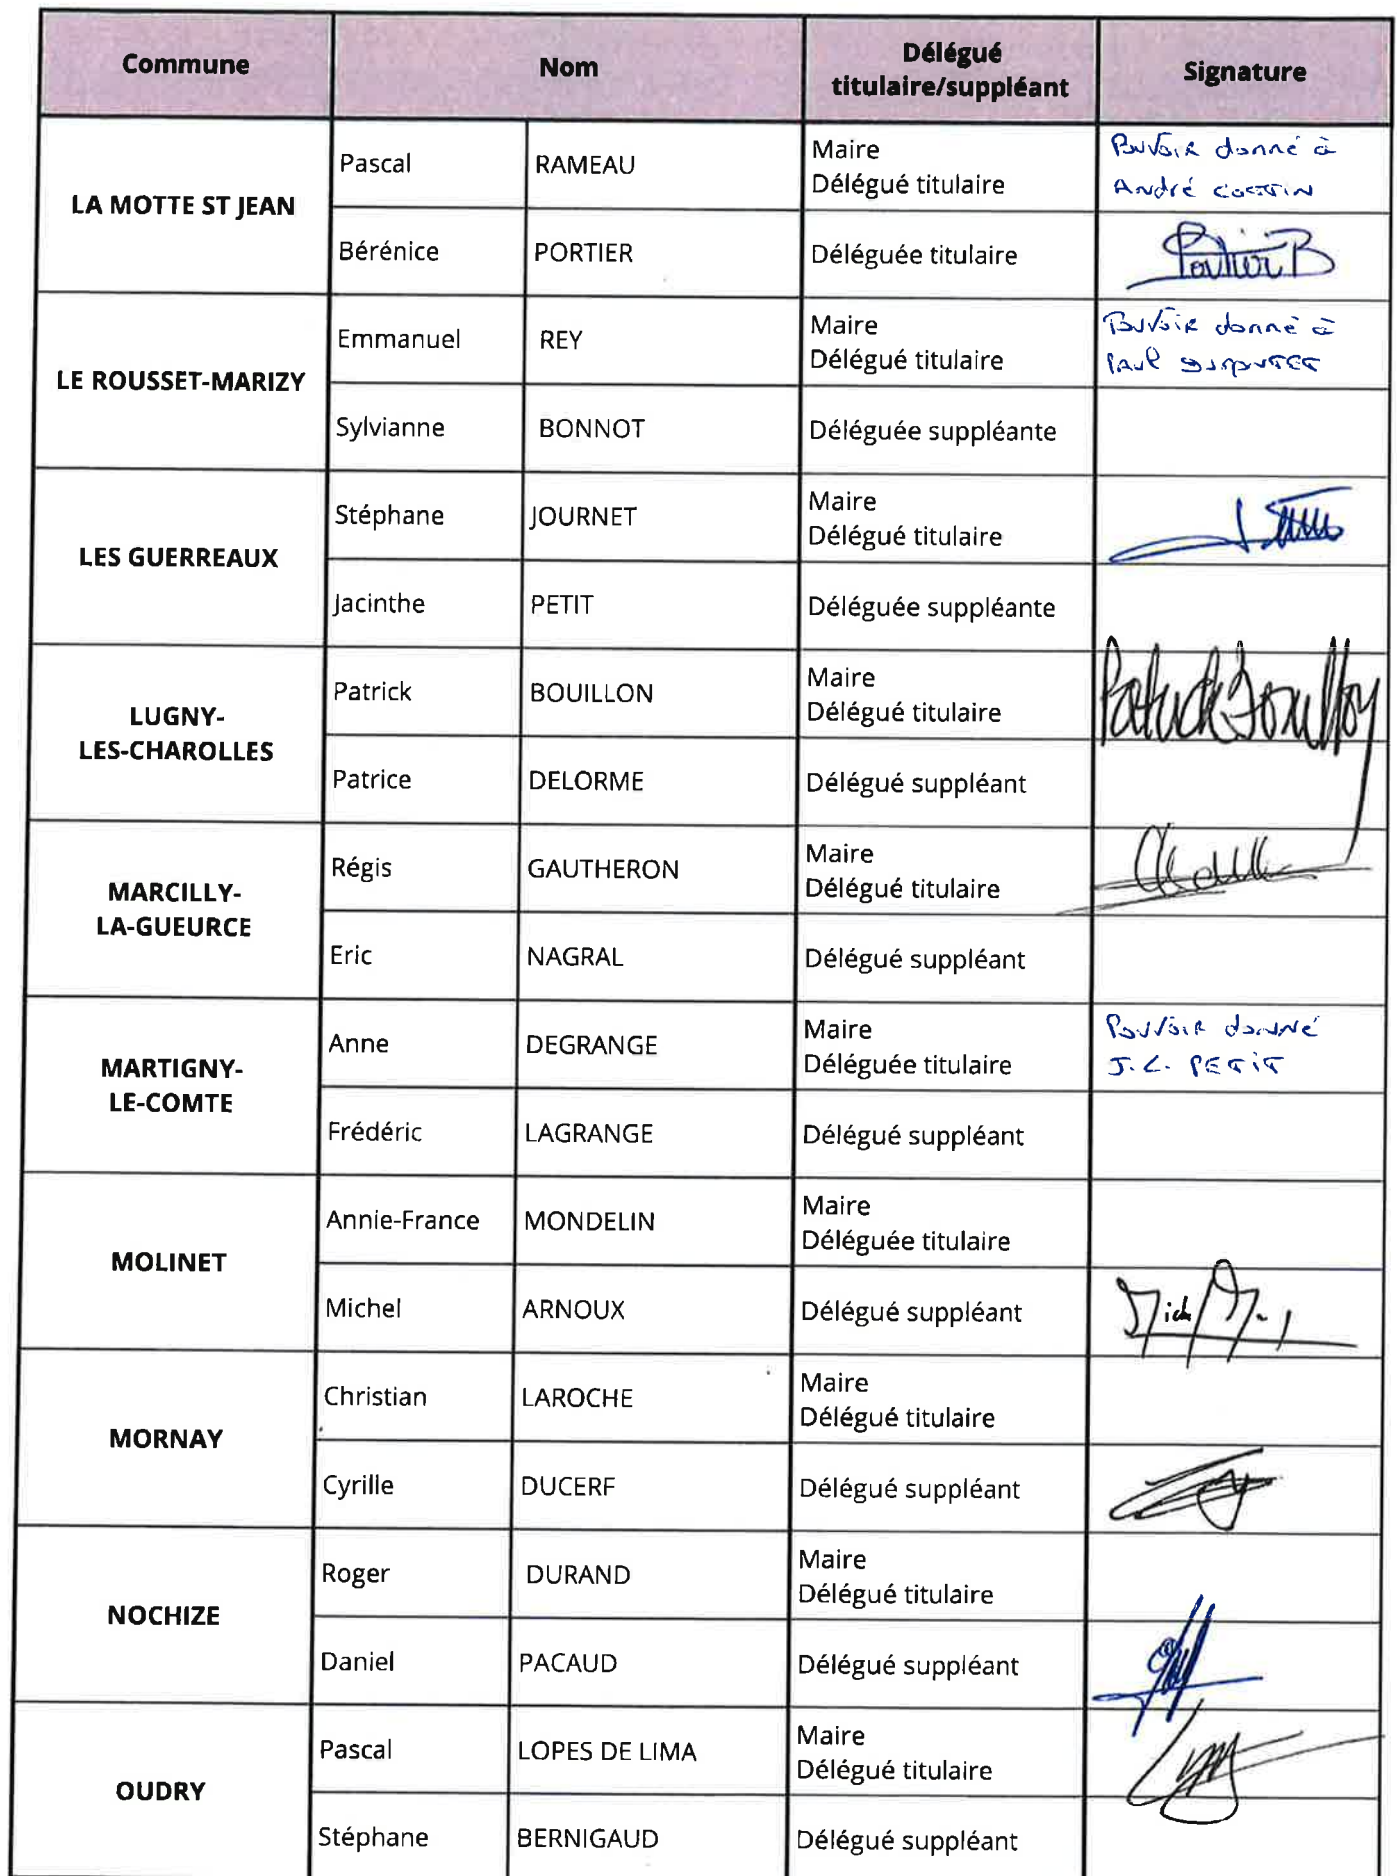 Commune
Nom
Délégué
titulaire/suppléant
Signature
LA MOTTE ST JEAN
Pascal
RAMEAU
Maire
Délégué titulaire
Pouvoir donné à
André COTTIN
Bérénice
PORTIER
Déléguée titulaire
Portier B
LE ROUSSET-MARIZY
Emmanuel
REY
Maire
Délégué titulaire
Pouvoir donné à
Paul
Sylvianne
BONNOT
Déléguée suppléante
LES GUERREAUX
Stéphane
JOURNET
Maire
Délégué titulaire
Jacinthe
PETIT
Déléguée suppléante
LUGNY-
LES-CHAROLLES
Patrick
BOUILLON
Maire
Délégué titulaire
Patrick
Patrice
DELORME
Délégué suppléant
MARCILLY-
LA-GUEURCE
Régis
GAUTHERON
Maire
Délégué titulaire
Eric
NAGRAL
Délégué suppléant
MARTIGNY-
LE-COMTE
Anne
DEGRANGE
Maire
Déléguée titulaire
Pouvoir donné
J.L. PETIT
Frédéric
LAGRANGE
Délégué suppléant
MOLINET
Annie-France
MONDELIN
Maire
Déléguée titulaire
Michel
ARNOUX
Délégué suppléant
MORNAY
Christian
LAROCHE
Maire
Délégué titulaire
Cyrille
DUCERF
Délégué suppléant
NOCHIZE
Roger
DURAND
Maire
Délégué titulaire
Daniel
PACAUD
Délégué suppléant
OUDRY
Pascal
LOPES DE LIMA
Maire
Délégué titulaire
Stéphane
BERNIGAUD
Délégué suppléant